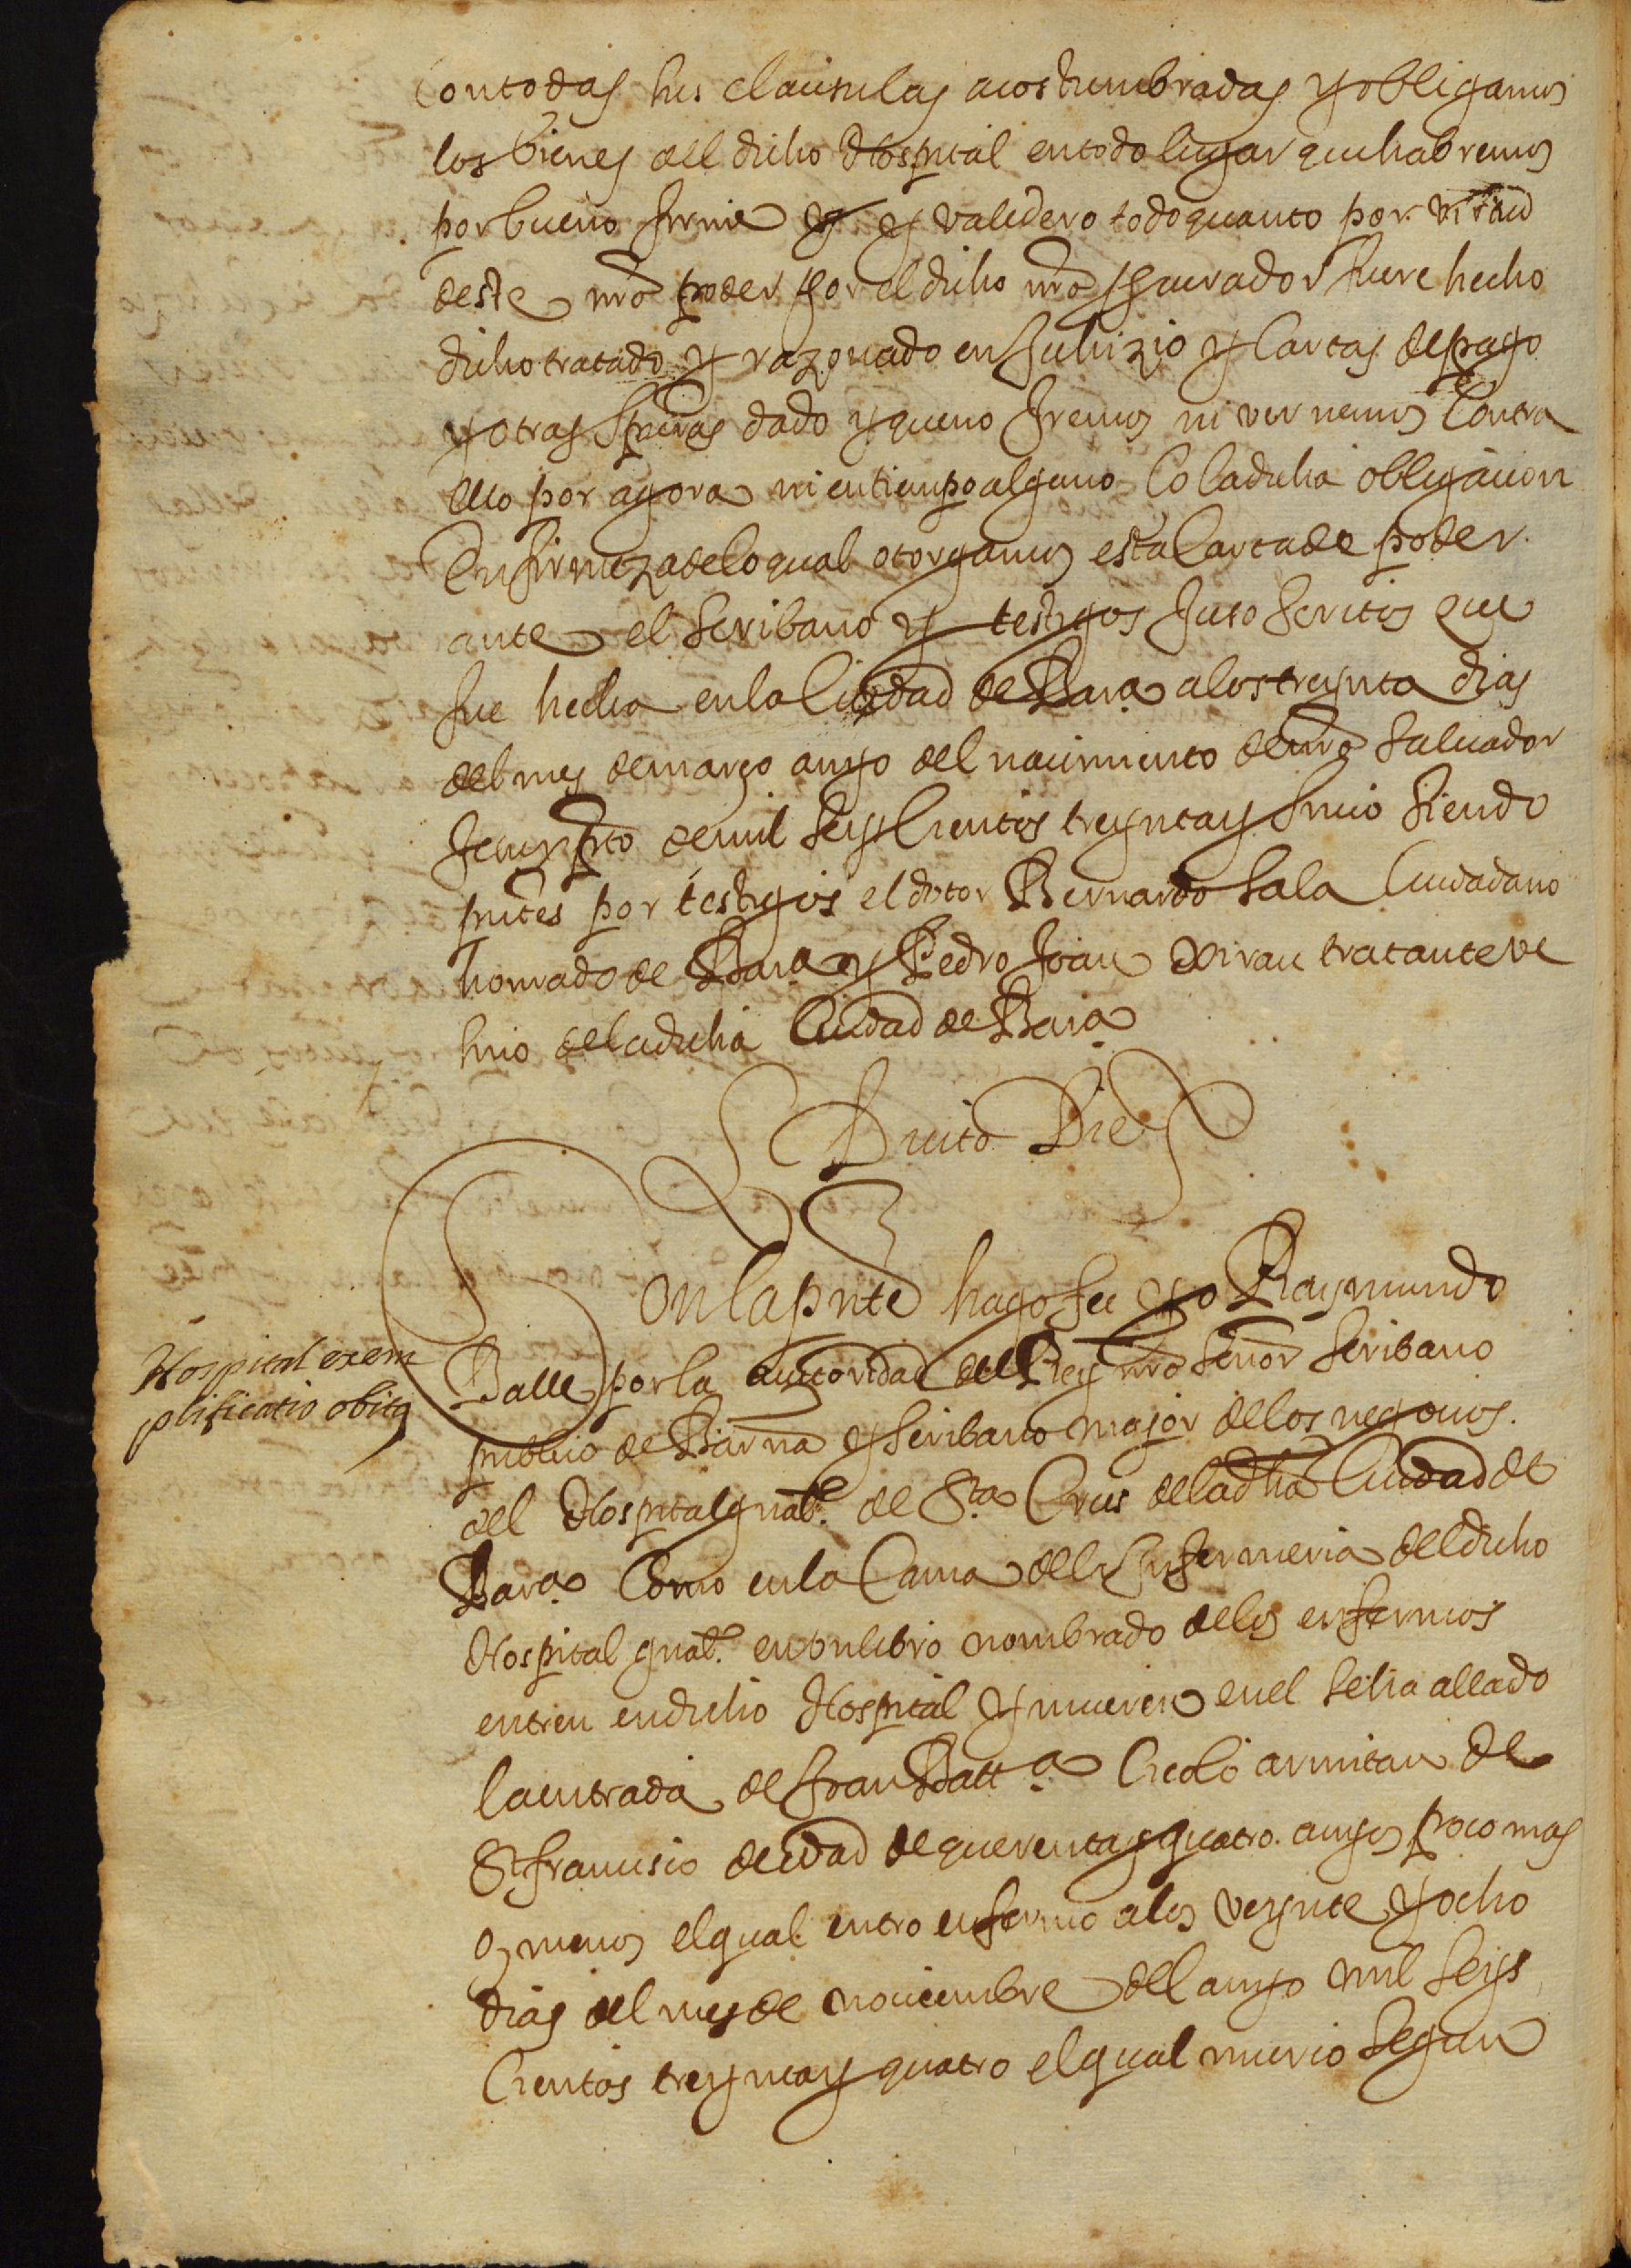 Con todas sus clausulas acostumbradas y obligamos
los bienes del dicho Hospital en todo lugar que habremos
por bueno firme y validero todo quanto por virtud
deste nro poder por el dicho nro procurador fuere hecho
dicho tratado y razonado en Juhizio y Cartas de pago
y otras Spturas dado y que no Iremos ni vernemos Contra
ello por agora ni en tiempo alguno So la dicha obligacion
En firmeza de lo qual otorgamos esta Carta de poder
ante el Scribano y testigos Juso Scritos que
fue hecha en la Ciudad de Bara. a los treynta dias
del mes de março anyo del nacimiento de nro Saluador
Jesuxpto de mil Seys Cientos treynta y Sinco Siendo
pntes por testigos el dotor Bernardo Sala Ciudadano
honrado de Bara. y Pedro Joan Xirau tratante ve
sino de la dicha Ciudad de Bara.
Dicto Die
Hospital exem
plificatio obitq
Con la pnte hago fee yo Raymundo
Balle por la auctoridad del Rey nro Señor Scribano
publico de Barna y Scribano major de los negocios
del Hospital gnal. de Sta Crus de la dha Ciudad de
Bara. Como en la Cama de la Enfermeria del dicho
Hospital gnal. en un libro nombrado de los enfermos
entren en dicho Hospital y mueren en el Se ha allado
la entrada de Joan Batta. armitan de
St francisco de edad de querenta y quatro anyos poco mas
o menos el qual entro enfermo a los veynte y ocho
dias del mes de nouiembre del anyo mil Seys
Cientos treynta y quatro el qual murio Segun